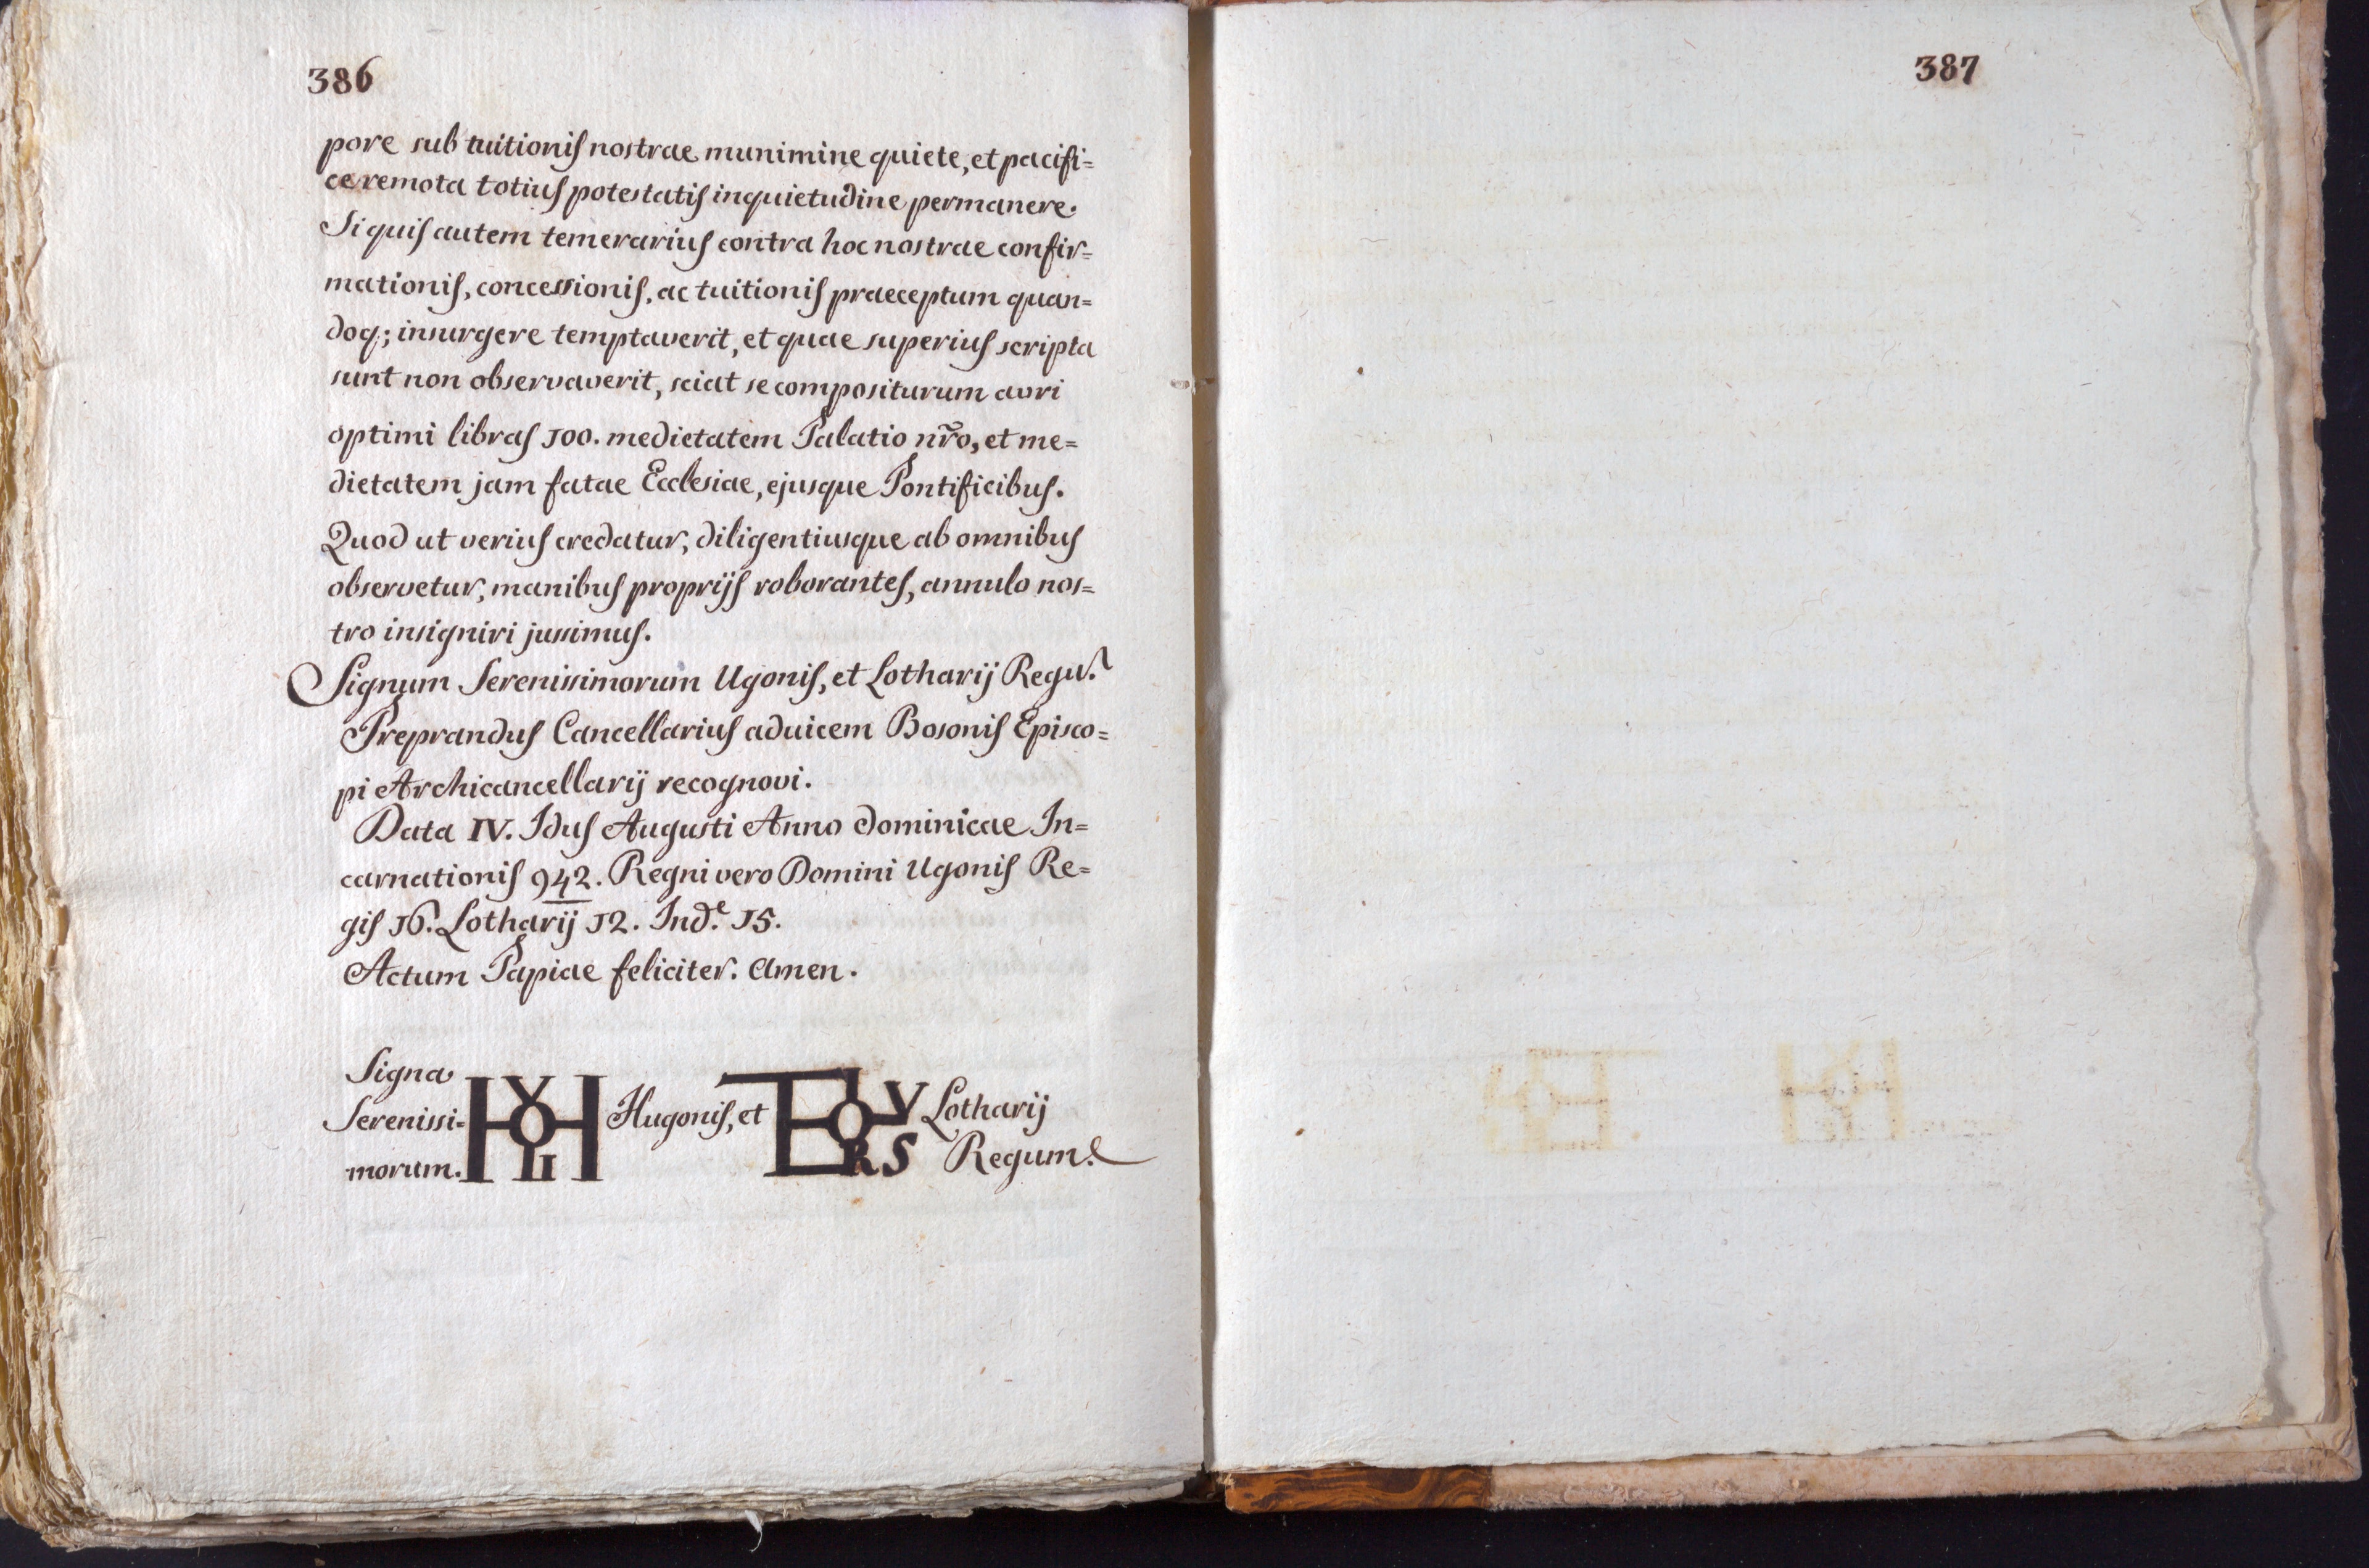 386
pore sub tuitionis nostrae munimine quiete, et pacifi=
ce remota totius potestatis inquietudine permanere.
Si quis autem temerarius contra hoc nostrae confir=
mationis, concessionis, ac tuitionis praeceptum quan=
doq; insurgere temptaverit, et quae superius scripta
sunt non observaverit, sciat se compositurum auri
optimi libras 100. medietatem Palatio nr̃o, et me=
dietatem jam fatae Ecclesiae, ejusque Pontificibus.
Quod ut verius credatur, diligentiusque ab omnibus
observetur, manibus proprijs roborantes, annulo nos=
tro insigniri jussimus.
Signum Serenissimorum Ugonis, et Lotharij Regu.
Preprandus Cancellarius ad vicem Bosonis Episco=
pi Archicancellarij recognovi.
Data IV. Idus Augusti Anno dominicae In=
carnationis 942. Regni vero Domini Ugonis Re=
gis 16. Lotharij 12. Ind.e 15.
Actum Papiae feliciter. Amen.
Signa
Serenissi=
morum.
Hugonis, et
Lotharij
Regum.
387